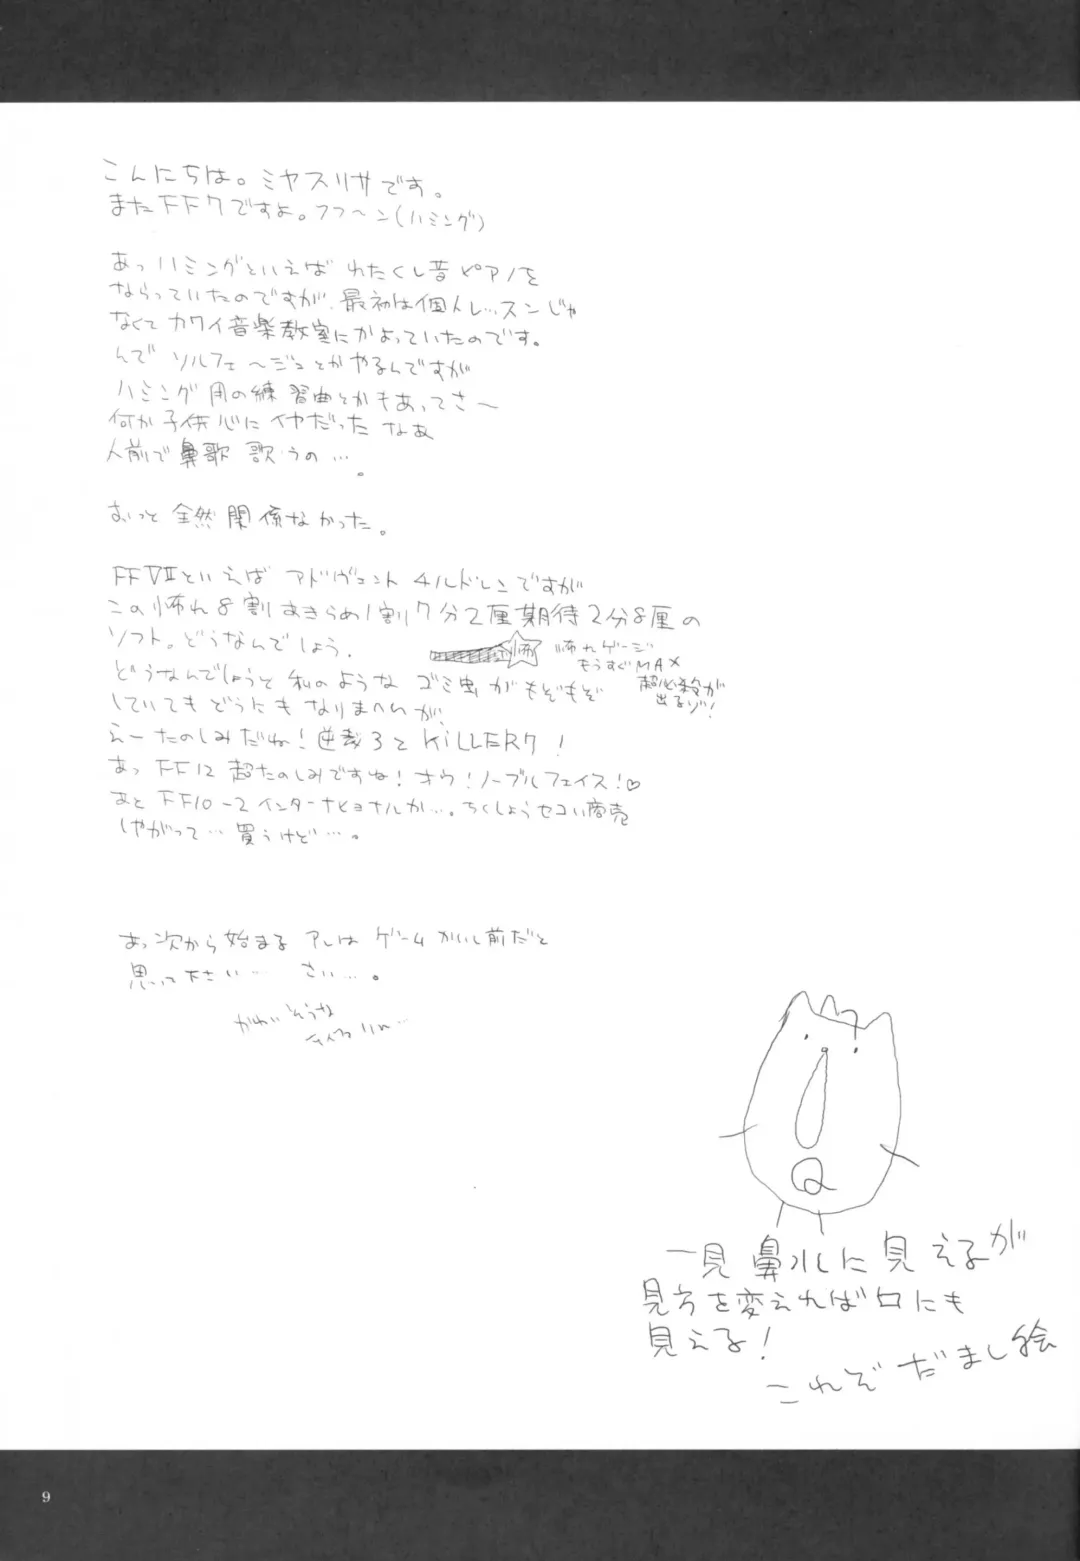 こんにちは。ミヤスリサです。
またFF7ですよ。フフ〜ン(ハミング)
あっハミングといえば わたくし昔ピアノを
ならっていたのですが、最初は個人レッスンじゃ
なくて カワイ音楽教室にかよっていたのです。
んで ソルフェ〜ジュとかやるんですが
ハミング用の練習曲とかもあってさ〜
何か子供心に イヤだった なあ
人前で鼻歌 歌うの…。
おっと 全然関係なかった。
FFⅦといえば アドヴェント チルドレンですが
この怖れ8割あきらめ1割7分2厘期待2分8厘の
ソフト。どうなんでしょう.
怖
怖れゲージ
もうすぐMAX
超必殺が
出るゾ!
どうなんでしょうと 私のような ゴミ虫がもぞもぞ
していても どうにも なりまへんが、
えー たのしみだね!逆裁3とKiLLER7!
あっ FF12 超たのしみですね!オウ!ノーブルフェイス!♡
あと FF10-2 インターナショナルが…。ちくしょうセコい商売
しやがって…買うけど…。
あっ次から始まる アレは ゲームがいし前だと
思って下さい… さい…。
かわいそうな
一見鼻水に見えるが
見方を変えれば口にも
見える!
これぞ だまし絵
9